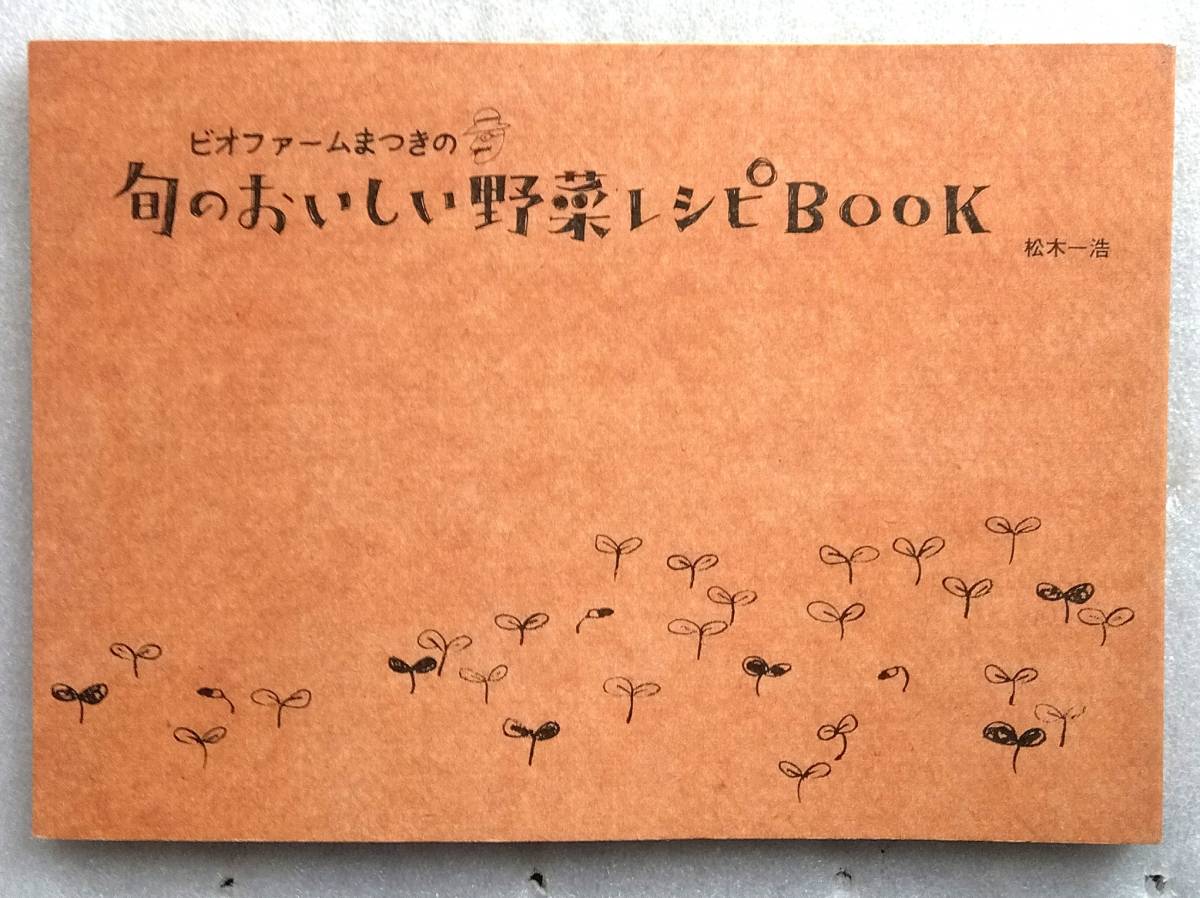 ビオファームまつきの
旬のおいしい野菜レシピBOOK
松木一浩